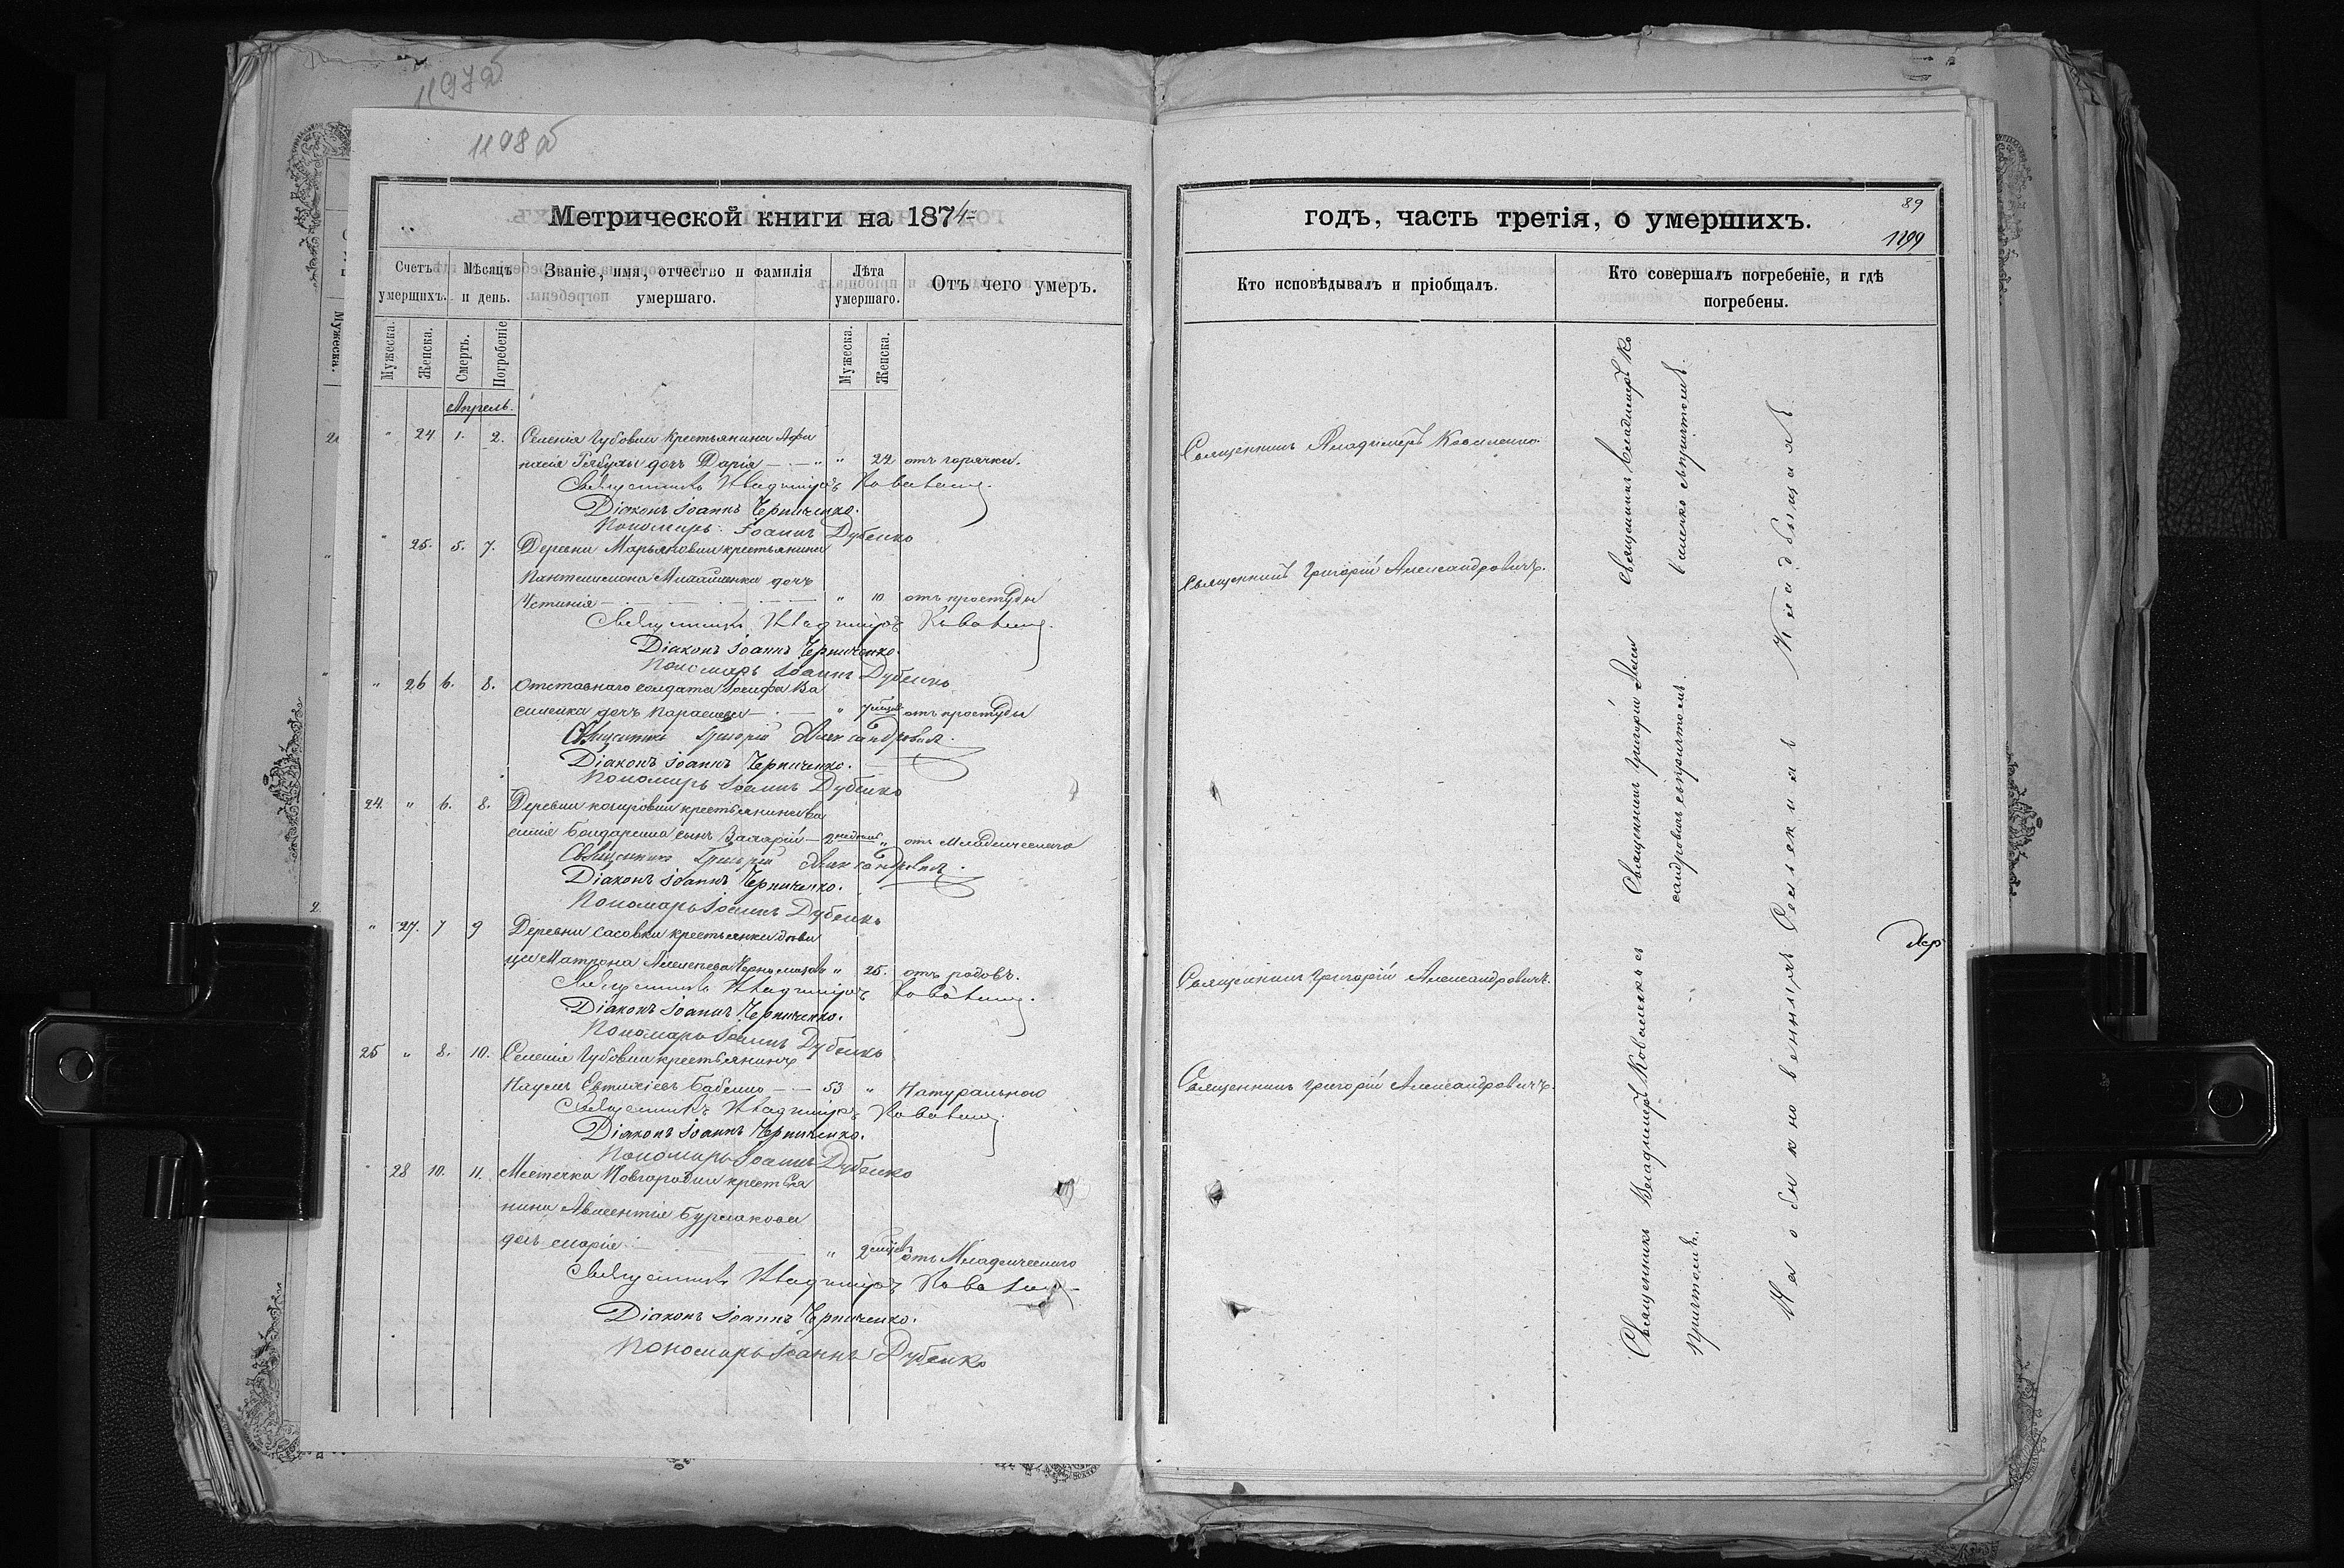 1197об
1198об
Метрической книги на 1874
Счетъ умершихъ.
Мѣсяцъ и день.
Званіе, имя, отчество и фамилія умершаго.
Лѣта умершаго.
Отъ чего умеръ.
Мужеска.
Женска.
Смерть.
Погребеніе
Мужеска.
Женска.
Апрель.
" 24 1. 2. Селенія Губовки крестьянина Афа
насія Рябухи дочь Дарія " 22 отъ горячки.
Священникъ Владиміръ Коваленко
Діаконъ Іоаннъ Черниченко.
Пономарь Іоаннъ Дубенко
" 25. 5. 7. Деревни Марьяновки крестьянина
Пантелимона дочь
Устинія " 10 отъ простуды
Священникъ Владиміръ Коваленко
Діаконъ Іоаннъ Черниченко.
Пономарь Іоаннъ Дубенко
" 26 6. 8. Отставнаго солдата Іосифа Ва
силенка дочь Параскева " отъ простуды
Священникъ Григорій Александровичъ
Діаконъ Іоаннъ Черниченко.
Пономарь Іоаннъ Дубенко
24. " 6. 8. Деревни крестьянина Ва
силія Бондаренка сынъ Валерій 2 недѣли " отъ Младенческаго
Священникъ Григорій Александровичъ
Діаконъ Іоаннъ Черниченко.
Пономарь Іоаннъ Дубенко
" 27. 7 9 Деревни Сасовки крестьянка дѣви
ца Матрона " 25. отъ родовъ.
Священникъ Владиміръ Коваленко
Діаконъ Іоаннъ Черниченко.
Пономарь Іоаннъ Дубенко
25 " 8. 10. Селенія Губовки крестьянинъ
Наумъ Евтихіевъ Бабенко 53 " Натурально
Священникъ Владиміръ Коваленко
Діаконъ Іоаннъ Черниченко.
Пономарь Іоаннъ Дубенко
" 28 10. 11. Местечка Новгородки крестья
нина Авксентія Бурлакова
дочь Марія " 2 отъ Младенческаго
Священникъ Владиміръ Коваленко
Діаконъ Іоаннъ Черниченко.
Пономарь Іоаннъ Дубенко
годъ, часть третія, о умершихъ.
89
1199
Кто исповѣдывалъ и пріобщалъ.
Кто совершалъ погребеніе, и гдѣ погребены.
Священникъ Владимеръ Коваленко.
Священникъ Григорій Александровичъ.
Священникъ Григорій Александровичъ.
Священникъ Григорій Александровичъ.
Священникъ Владимеръ Ко
валенко съ причтомъ.
Священникъ Григорій Алек
сандровичъ съ причтомъ.
Священникъ Владимеръ Коваленко съ
причтомъ.
На обыкновенныхъ Сельскихъ Кладбищахъ.